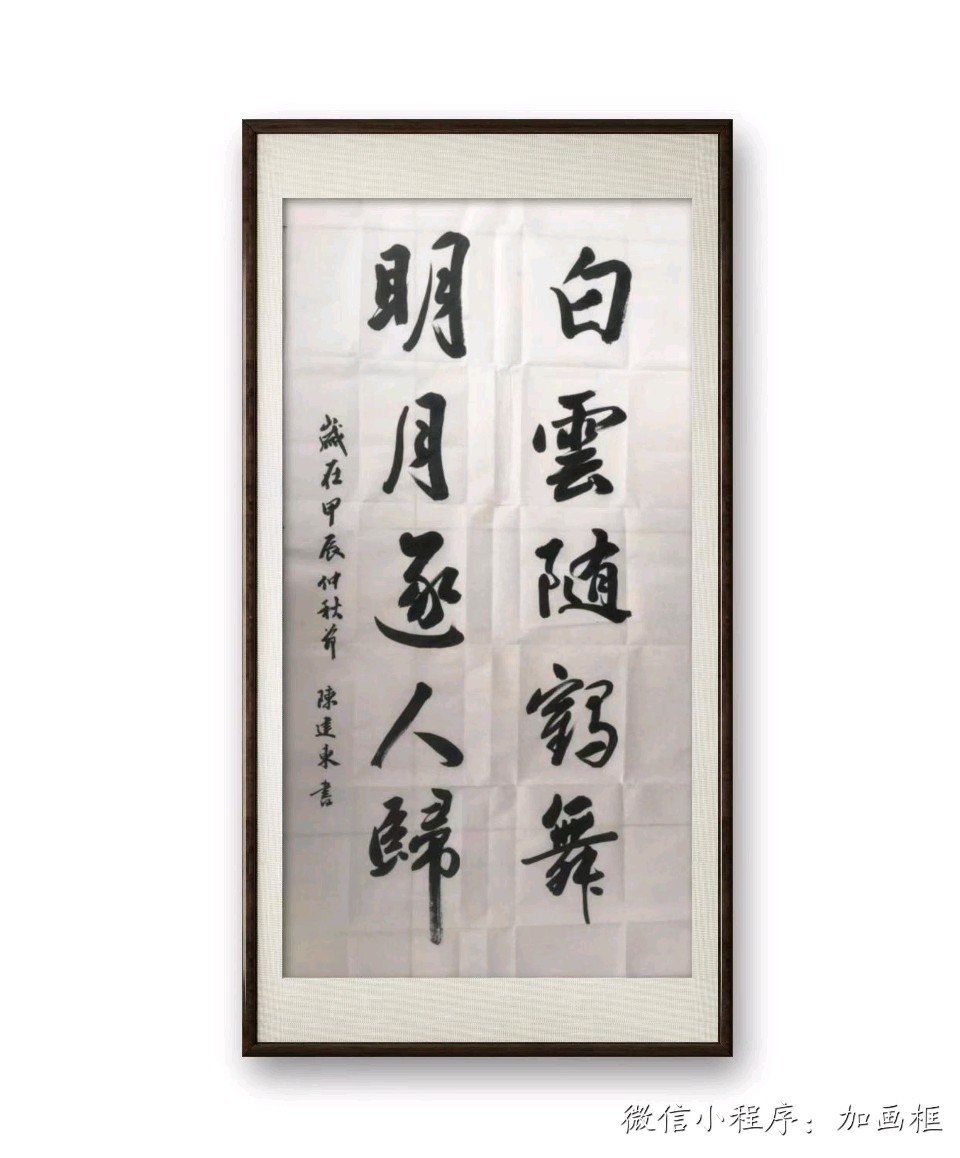 白雲随鹤舞
明月逐人歸
歲在甲辰仲秋节 陳建東書
微信小程序：加画框